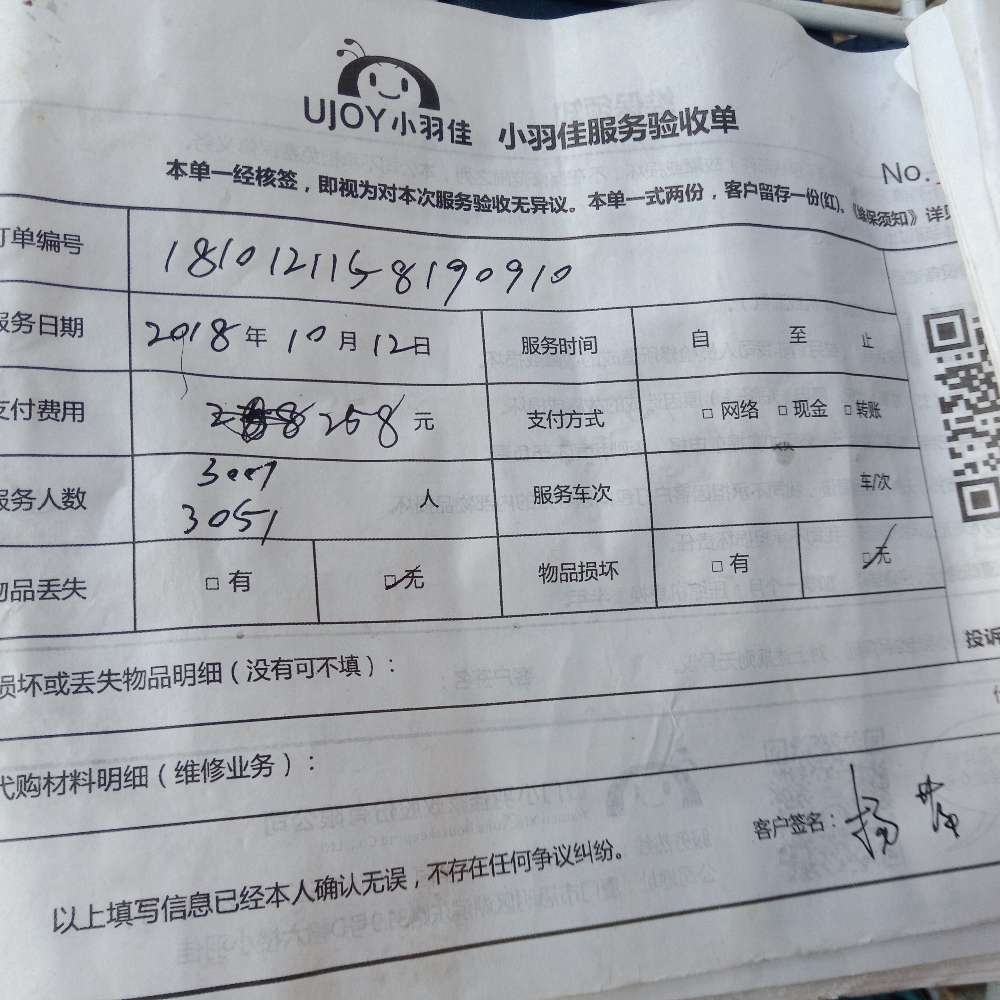 UJOY小羽佳 小羽佳服务验收单
No.
本单一经核签，即视为对本次服务验收无异议。本单一式两份，客户留存一份(红)。《维保须知》详见
订单编号 1810121158190910
服务日期 2018年10月12日 服务时间 自 至 止
支付费用 268元 支付方式 □网络 □现金 □转账
3007
服务人数 人 服务车次 车/次
3051
物品丢失 □有 ☑无 物品损坏 □有 ☑无
投诉
损坏或丢失物品明细（没有可不填）：
代购材料明细（维修业务）：
客户签名：
以上填写信息已经本人确认无误，不存在任何争议纠纷。